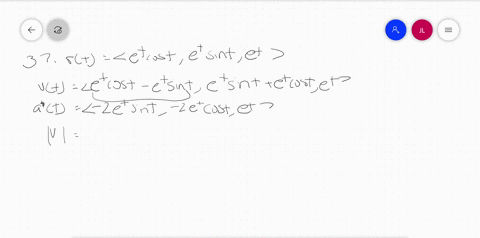 37. r(t) = <e^t cost, e^t sint, e^t>
v(t) = <e^t cost - e^t sint, e^t sint + e^t cost, e^t>
a(t) = <-2e^t sint, -2e^t cost, e^t>
|V| =
JL